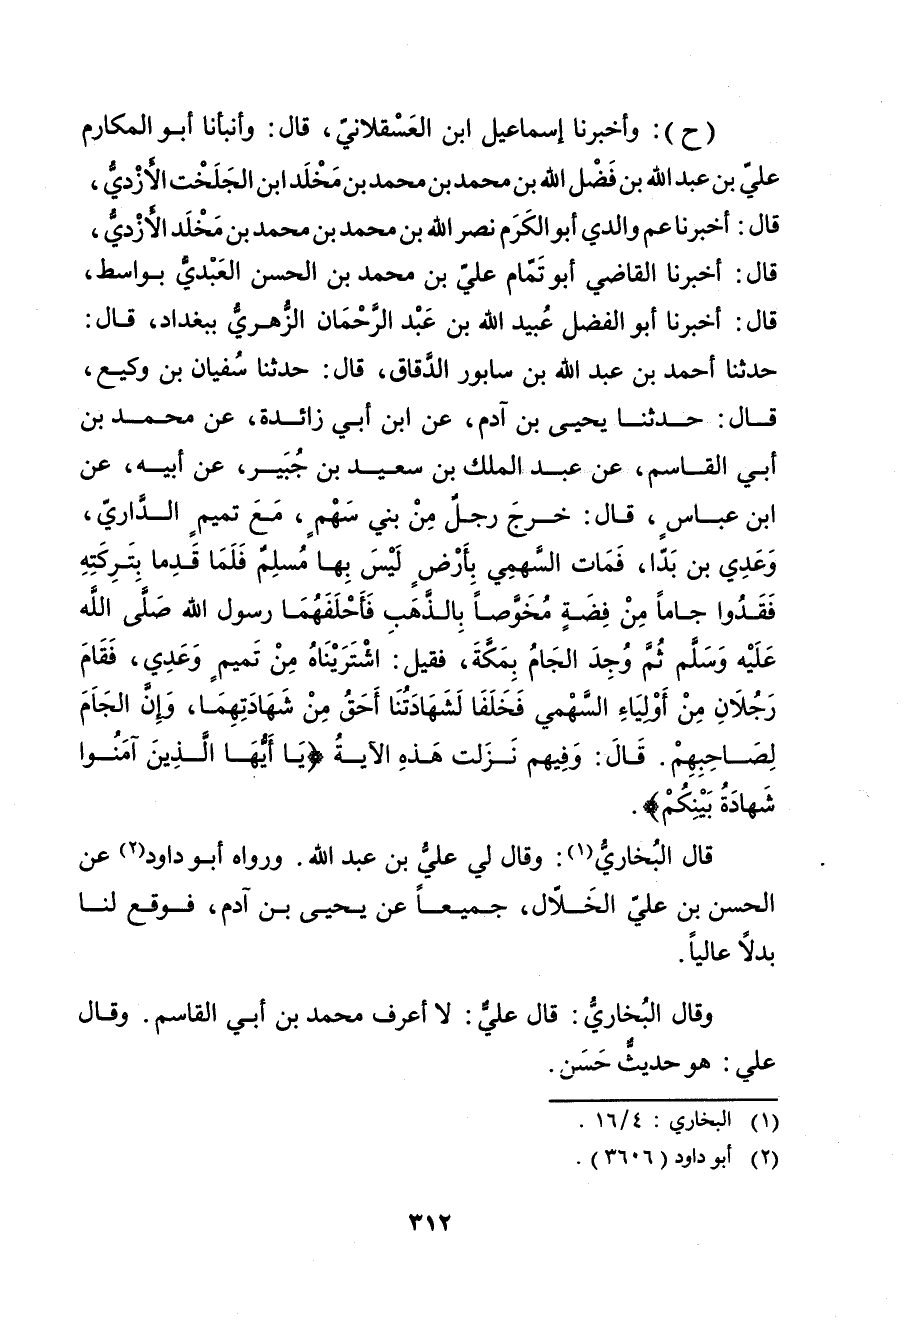 (ح): وأخبرنا إسماعيل ابن العَسْقلانيّ، قال: وأنبأنا أبو المكارم
عليّ بن عبد الله بن فَضْل الله بن محمد بن محمد بن مَخْلَد ابن الجَلَخْت الأَزْديُّ،
قال: أخبرنا عم والدي أبو الكَرَم نصر الله بن محمد بن محمد بن مَخْلَد الأَزْديُّ،
قال: أخبرنا القاضي أبو تَمَّام عليّ بن محمد بن الحسن العَبْديُّ بواسط،
قال: أخبرنا أبو الفضل عُبيد الله بن عَبْد الرَّحْمَان الزُّهريُّ ببغداد، قال:
حدثنا أحمد بن عبد الله بن سابور الدَّقاق، قال: حدثنا سُفيان بن وكيع،
قال: حدثنا يحيى بن آدم، عن ابن أبي زائدة، عن محمد بن
أبي القاسم، عن عبد الملك بن سعيد بن جُبَير، عن أبيه، عن
ابن عباسٍ، قال: خرجَ رجلٌ مِنْ بني سَهْمٍ، مَعَ تميمٍ الدَّاريّ،
وَعَدِي بن بَدّا، فَمَات السَّهمِي بِأَرْضٍ لَيْسَ بِها مُسلِمٌ فَلَمَا قَدِما بِتَرِكَتِهِ
فَقَدُوا جاماً مِنْ فِضَةٍ مُخَوَّصاً بِالذَّهَبِ فَأَحْلَفَهُمَا رسول الله صَلَّى اللَّه
عَلَيْه وَسَلَّم ثُمَّ وُجِدَ الجَامُ بِمَكَّةَ، فقيل: اشْتَرَيْنَاهُ مِنْ تَميمٍ وَعَدِي، فَقَامَ
رَجُلَانِ مِنْ أَوْلِيَاءِ السَّهْمِي فَحَلَفَا لَشَهَادَتُنَا أَحَقُ مِنْ شَهَادَتِهِمَا، وَإِنَّ الجَامَ
لِصَاحِبِهِمْ. قَالَ: وَفِيهم نَزَلت هَذِهِ الآيةُ ﴿يَا أَيُّهَا الَّذِينَ آمَنُوا
شَهادَةُ بَيْنِكُمْ﴾.
قال البُخاريُّ(١): وقال لي عليُّ بن عبد الله. ورواه أبو داود(٢) عن
الحسن بن عليّ الخَلّال، جميعاً عن يحيى بن آدم، فوقع لنا
بدلاً عالياً.
وقال البُخاريُّ: قال عليٌّ: لا أعرف محمد بن أبي القاسم. وقال
علي: هو حديثٌ حَسَن.
(١) البخاري: ١٦/٤.
(٢) أبو داود (٣٦٠٦).
٣١٢